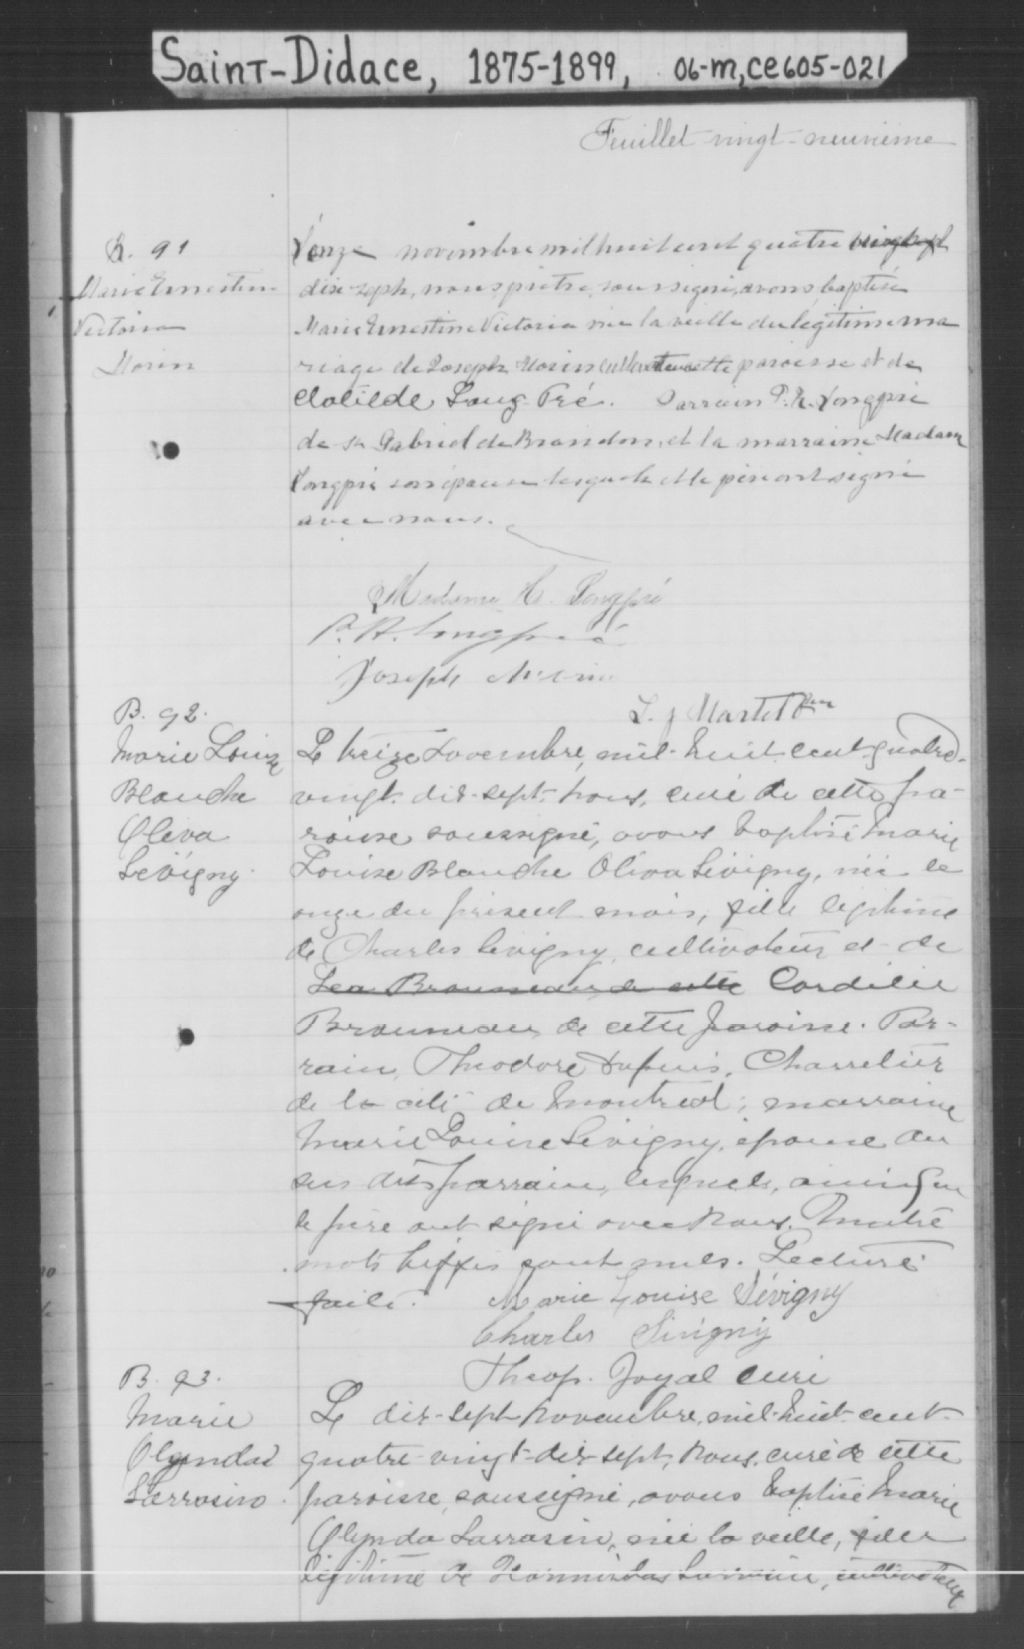 Saint-Didace, 1875-1899, 06-M, CE605-021
Feuillet vingt-neuvième
B. 91
Marie Ernestine
Victoria
Morin
L'onze novembre mil huit cent quatre vingt
dix-sept, nous prêtre soussigné, avons baptisé
Marie Ernestine Victoria née la veille du légitime ma
riage de Joseph Morin cultivateur de cette paroisse et de
Clotilde Long-Pré. Parrain P. H. Longpré
de St Gabriel de Brandon, et la marraine Madame
Longpré son épouse lesquels et le père ont signé
avec nous.
Madame H. Longpré
P. H. Longpré
Joseph Morin
L. J. Martel Ptre
B. 92.
Marie Louise
Blanche
Oliva
Sévigny.
Le treize Novembre, mil-huit-cent-quatre-
vingt-dix-sept, Nous, curé de cette pa-
roisse soussigné, avons baptisé Marie
Louise Blanche Oliva Sévigny, née le
onze du présent mois, fille légitime
de Charles Sévigny, cultivateur et de
Léa Brousseau de cette Cordélie
Brousseau, de cette paroisse. Par-
rain, Théodore Dupuis, Charretier
de la cité de Montréal; marraine
Marie Louise Sévigny, épouse du
sus dit parrain, lesquels, ainsi que
le père ont signé avec Nous. Quatre
mots biffés sont nuls. Lecture
faite. Marie Louise Sévigny
Charles Sévigny
Théop. Joyal Curé
B. 93.
Marie
Olynda
Sarrasin.
Le dix-sept Novembre, mil-huit-cent-
quatre-vingt-dix-sept, Nous, curé de cette
paroisse, soussigné, avons baptisé Marie
Olynda Sarrasin, née la veille, fille
légitime de Hormisdas Sarrasin, cultivateur